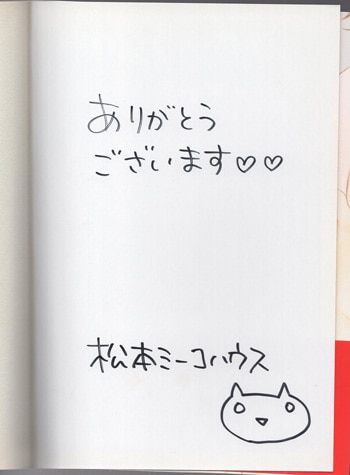 ありがとう
ございます♡♡
松本ミーコハウス